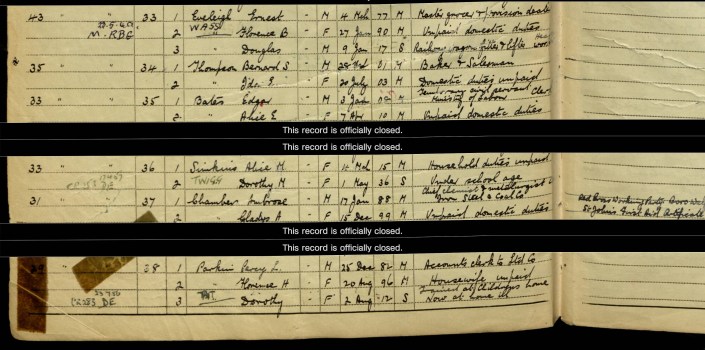 43 " " 33 1 Eveleigh Ernest - M 4 Mch 77 M Master grocer & provision dealer
22.5.40 M. RBG WASS 2 " Florence B - F 27 Jan 90 M Unpaid domestic duties
3 " Douglas - M 9 Jan 17 S Railway wagon fitter & lifter Heavy work
35 " " 34 1 Thompson Bernard S - M 28 01 M Baker & Salesman
2 " Ida - F 20 July 03 M Domestic duties unpaid
33 " " 35 1 Bates Edgar - M 3 Jan M Temporary civil servant Clerk Ministry of Labour
2 " Alice E - F 7 Apr 10 M Unpaid domestic duties
This record is officially closed.
This record is officially closed.
33 " " 36 1 Simkins Alice M. - F 14 Mch 15 M Household duties unpaid.
DE 2 TWIGH Dorothy M - F 1 May 36 S Under school age
31 " " 37 1 Chambers Ambrose - M 17 Jan 88 M Chief chemist & metallurgist Iron Steel & Coal Co
2 " Gladys A - F 15 Dec 99 M Unpaid domestic duties
St Johns First Aid
This record is officially closed.
This record is officially closed.
29 " 38 1 Parkin Percy L. - M 25 Dec 82 M Accounts clerk to Ltd Co
2 " Florence H - F 20 Aug 96 M Housewife unpaid
DE 3 Dorothy - F 2 Aug 12 S at Childrens home Now at home ill